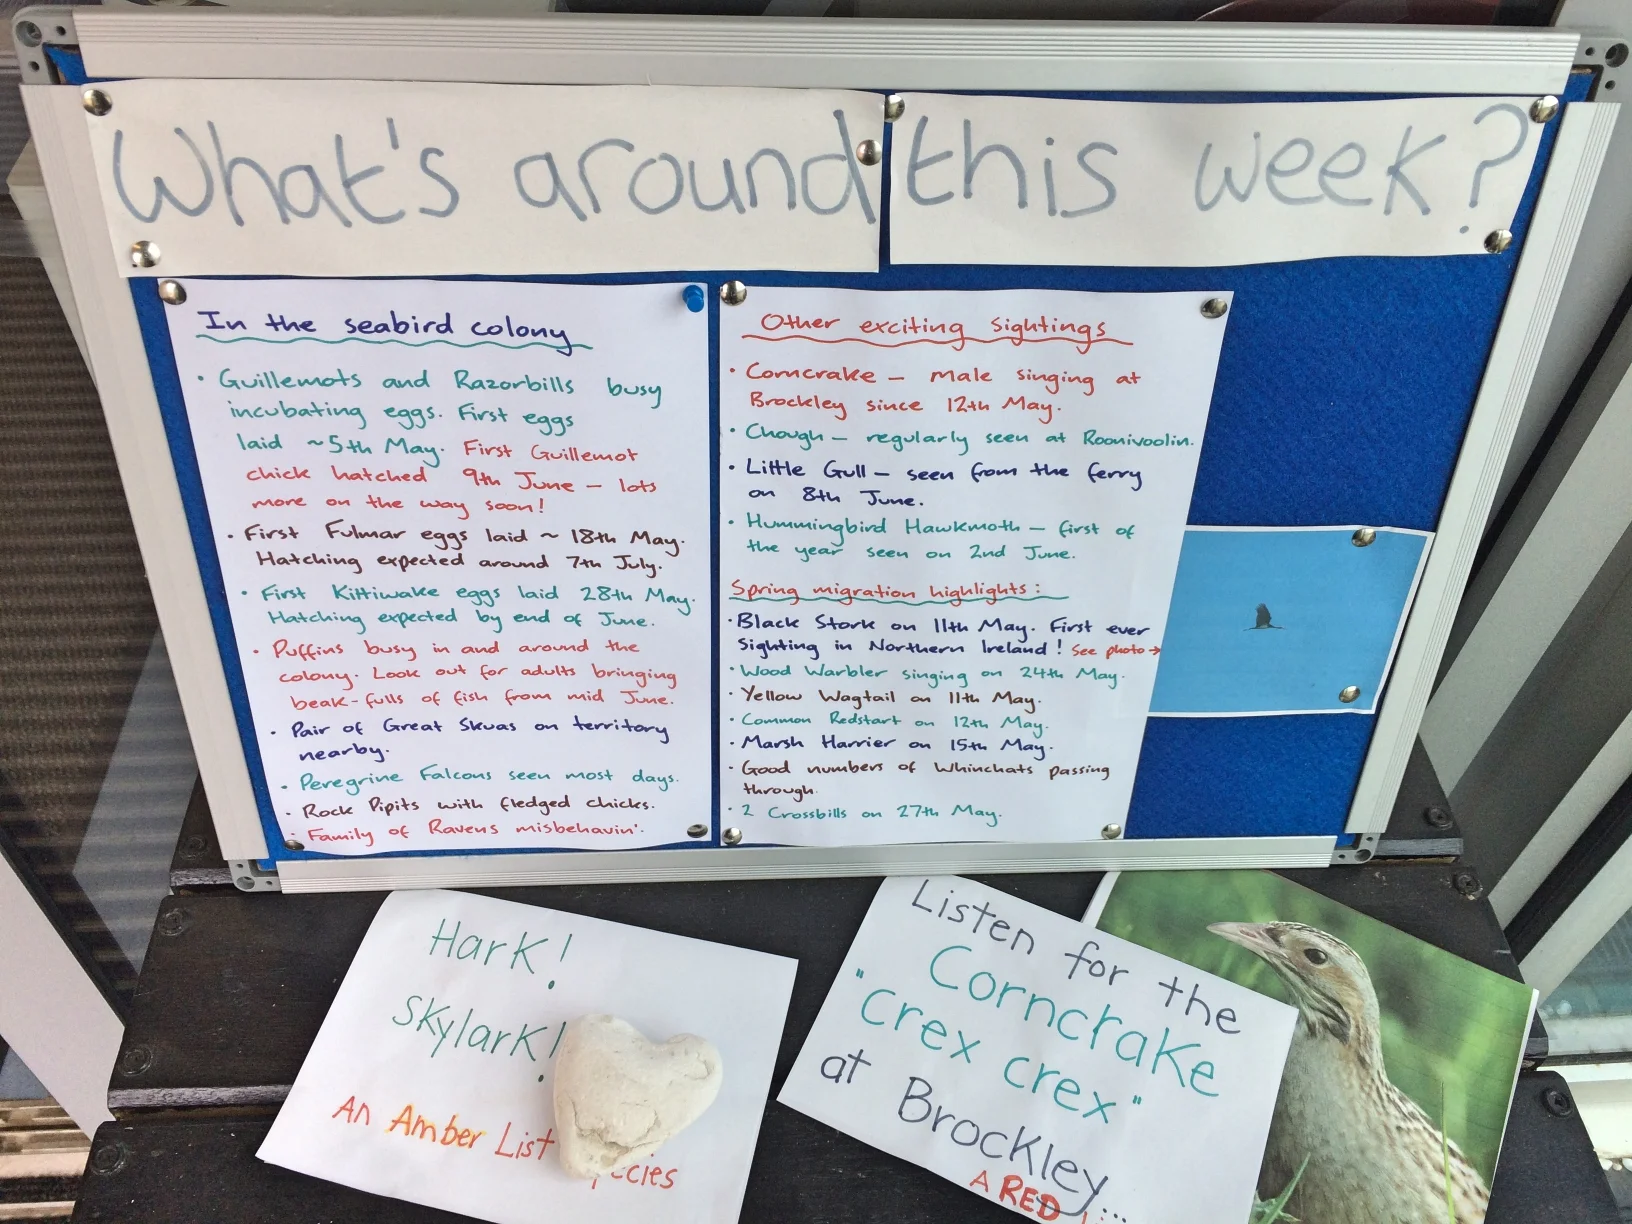 What's around this week?
In the seabird colony
• Guillemots and Razorbills busy
incubating eggs. First eggs
laid ~5th May. First Guillemot
chick hatched 9th June – lots
more on the way soon!
• First Fulmar eggs laid ~ 18th May.
Hatching expected around 7th July.
• First Kittiwake eggs laid 28th May.
Hatching expected by end of June.
• Puffins busy in and around the
colony. Look out for adults bringing
beak-fulls of fish from mid June.
• Pair of Great Skuas on territory
nearby.
• Peregrine Falcons seen most days.
• Rock Pipits with fledged chicks.
• Family of Ravens misbehavin'.
Other exciting sightings
• Corncrake – male singing at
Brockley since 12th May.
• Chough – regularly seen at Roonivoolin.
• Little Gull – seen from the ferry
on 8th June.
• Hummingbird Hawkmoth – first of
the year seen on 2nd June.
Spring migration highlights:
• Black Stork on 11th May. First ever
sighting in Northern Ireland! See photo →
• Wood Warbler singing on 24th May.
• Yellow Wagtail on 11th May.
• Common Redstart on 12th May.
• Marsh Harrier on 15th May.
• Good numbers of Whinchats passing
through.
• 2 Crossbills on 27th May.
Hark!
Skylark!
An Amber List
Listen for the
Corncrake
"crex crex"
at Brockley...
A RED